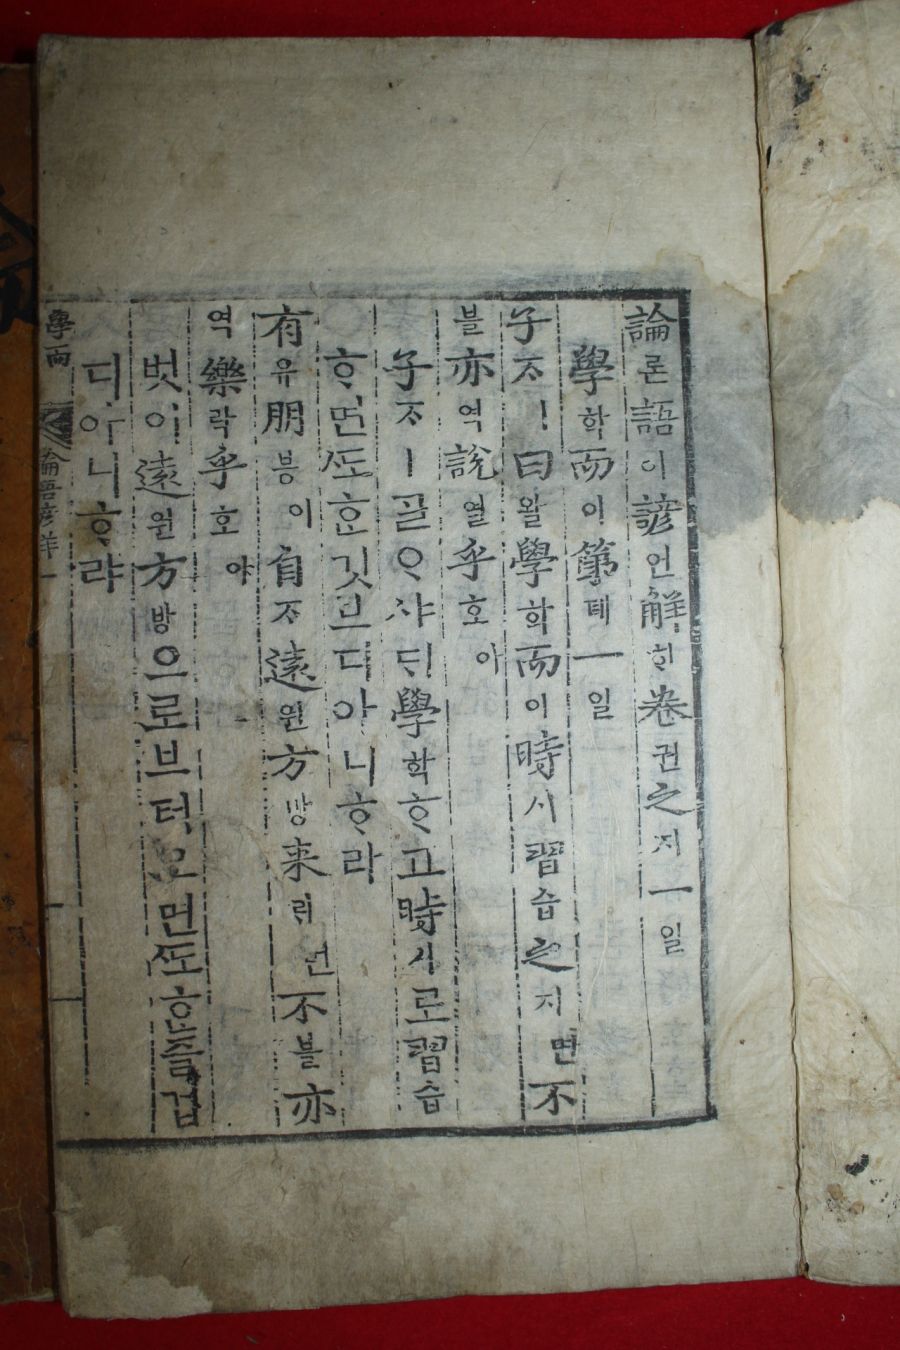 論론語이諺언解ᄒᆡ卷권之지一일
學학而이第뎨一일
子ᄌᆞㅣ曰왈學ᄒᆞᆨ而이時시習습之지면不
블亦역說열乎호아
子ᄌᆞㅣᄀᆞᆯᄋᆞ샤ᄃᆡ學ᄒᆞᆨᄒᆞ고時시로習습
ᄒᆞ면ᄯᅩᄒᆞᆫ깃브디아니ᄒᆞ랴
有유朋븡이自ᄌᆞ遠원方방來ᄅᆡ면不블亦
역樂락乎호야
벗이遠원方방으로브터오면ᄯᅩᄒᆞᆫ즐겁
디아니ᄒᆞ랴
學而 論語諺觧 一